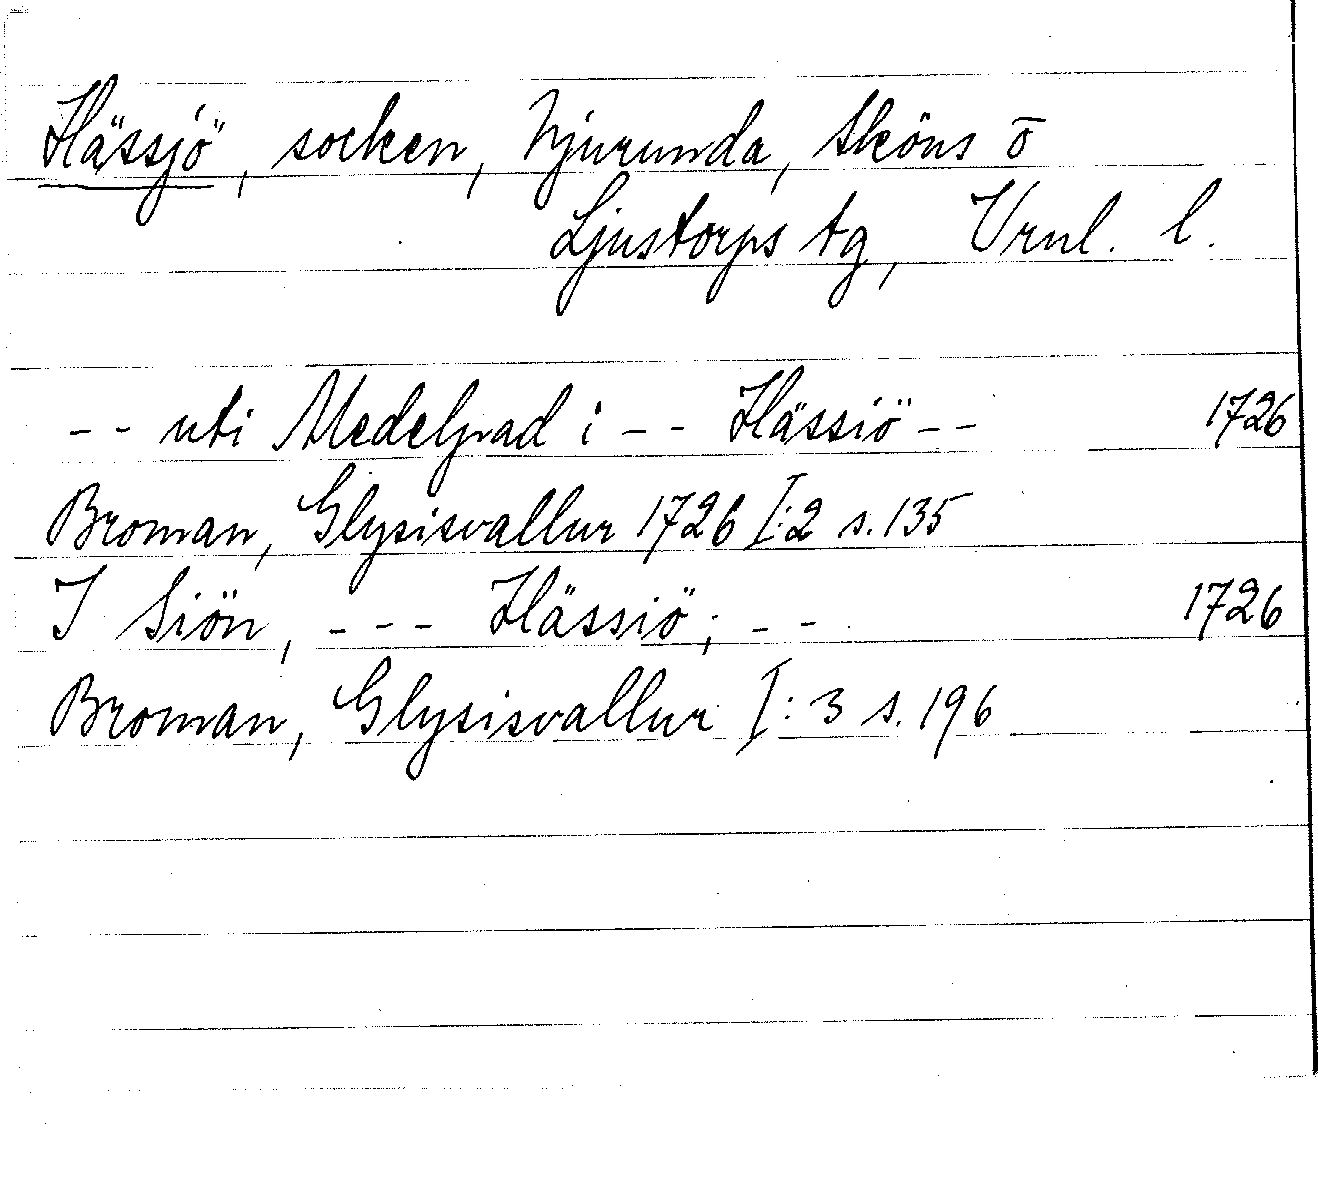 Hässjö, socken, Njurunda, Sköns o
Ljustorps tg, Vrnl. l.
-- uti Medelpad i -- Hässiö -- 1726
Broman, Glysisvallur 1726 I:2 s. 135
I Siön, --- Hässiö; -- 1726
Broman, Glysisvallur I:3 s. 196